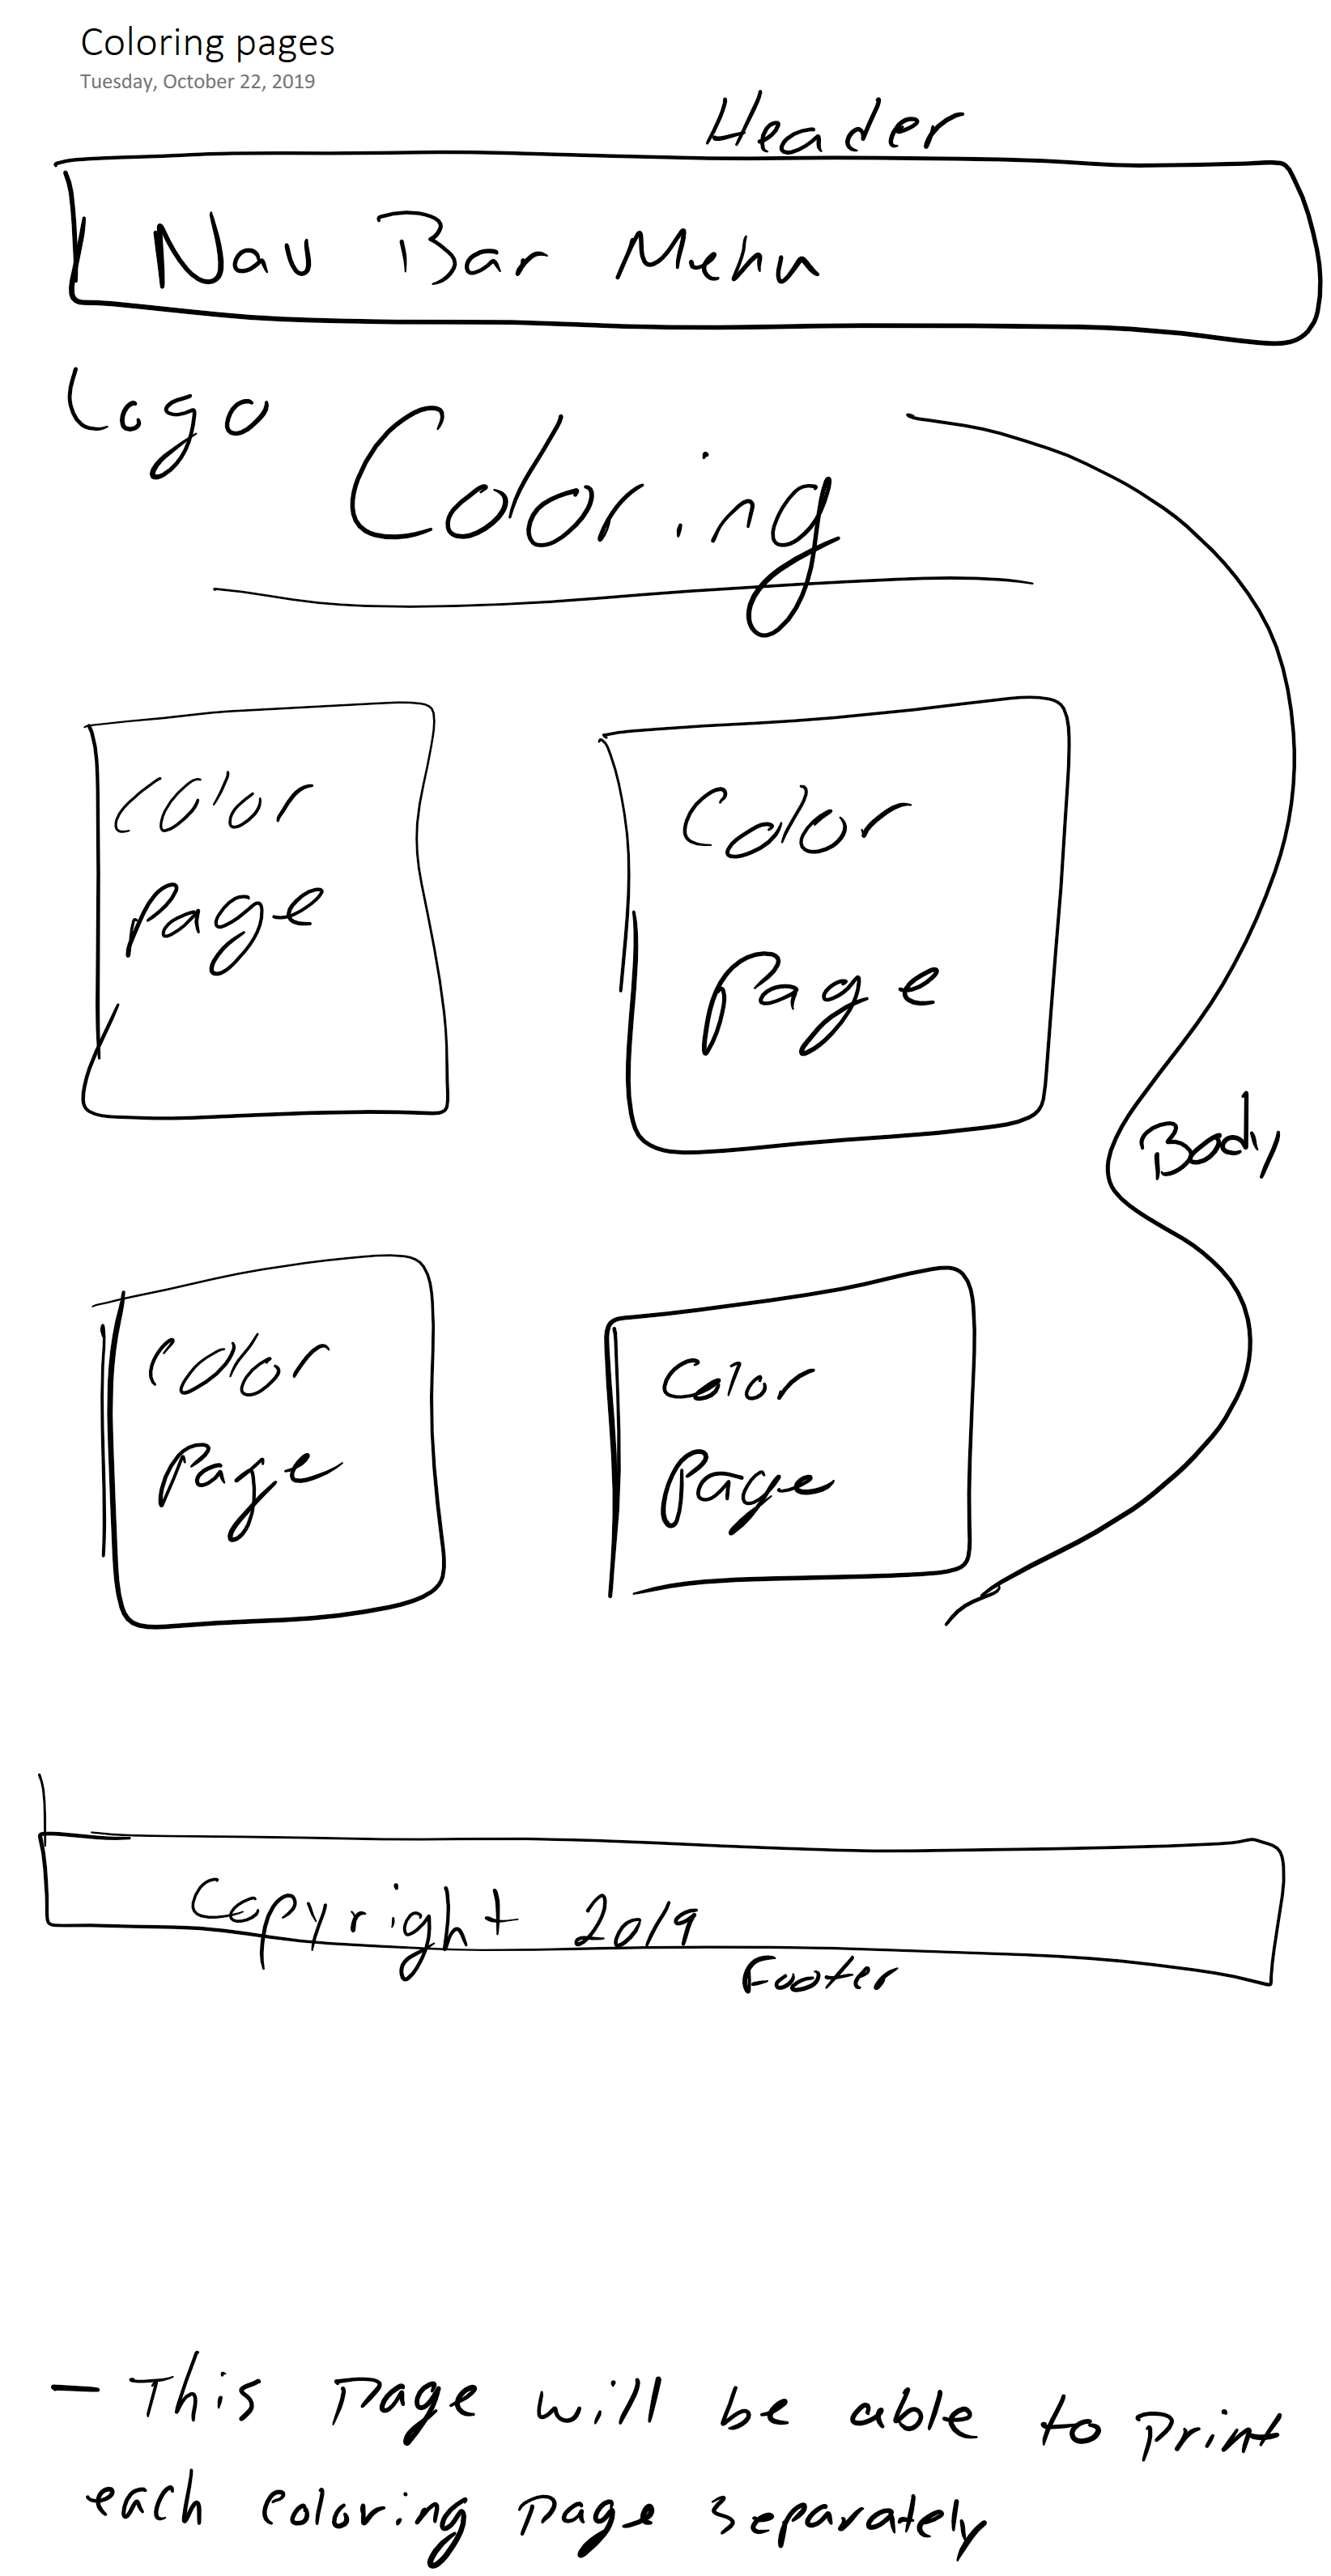 Coloring pages
Tuesday, October 22, 2019
Header
Nav Bar Menu
Logo
Coloring
Color
Page
Color
Page
Body
Color
Page
Color
Page
Copyright 2019
Footer
- This page will be able to print
each coloring page separately